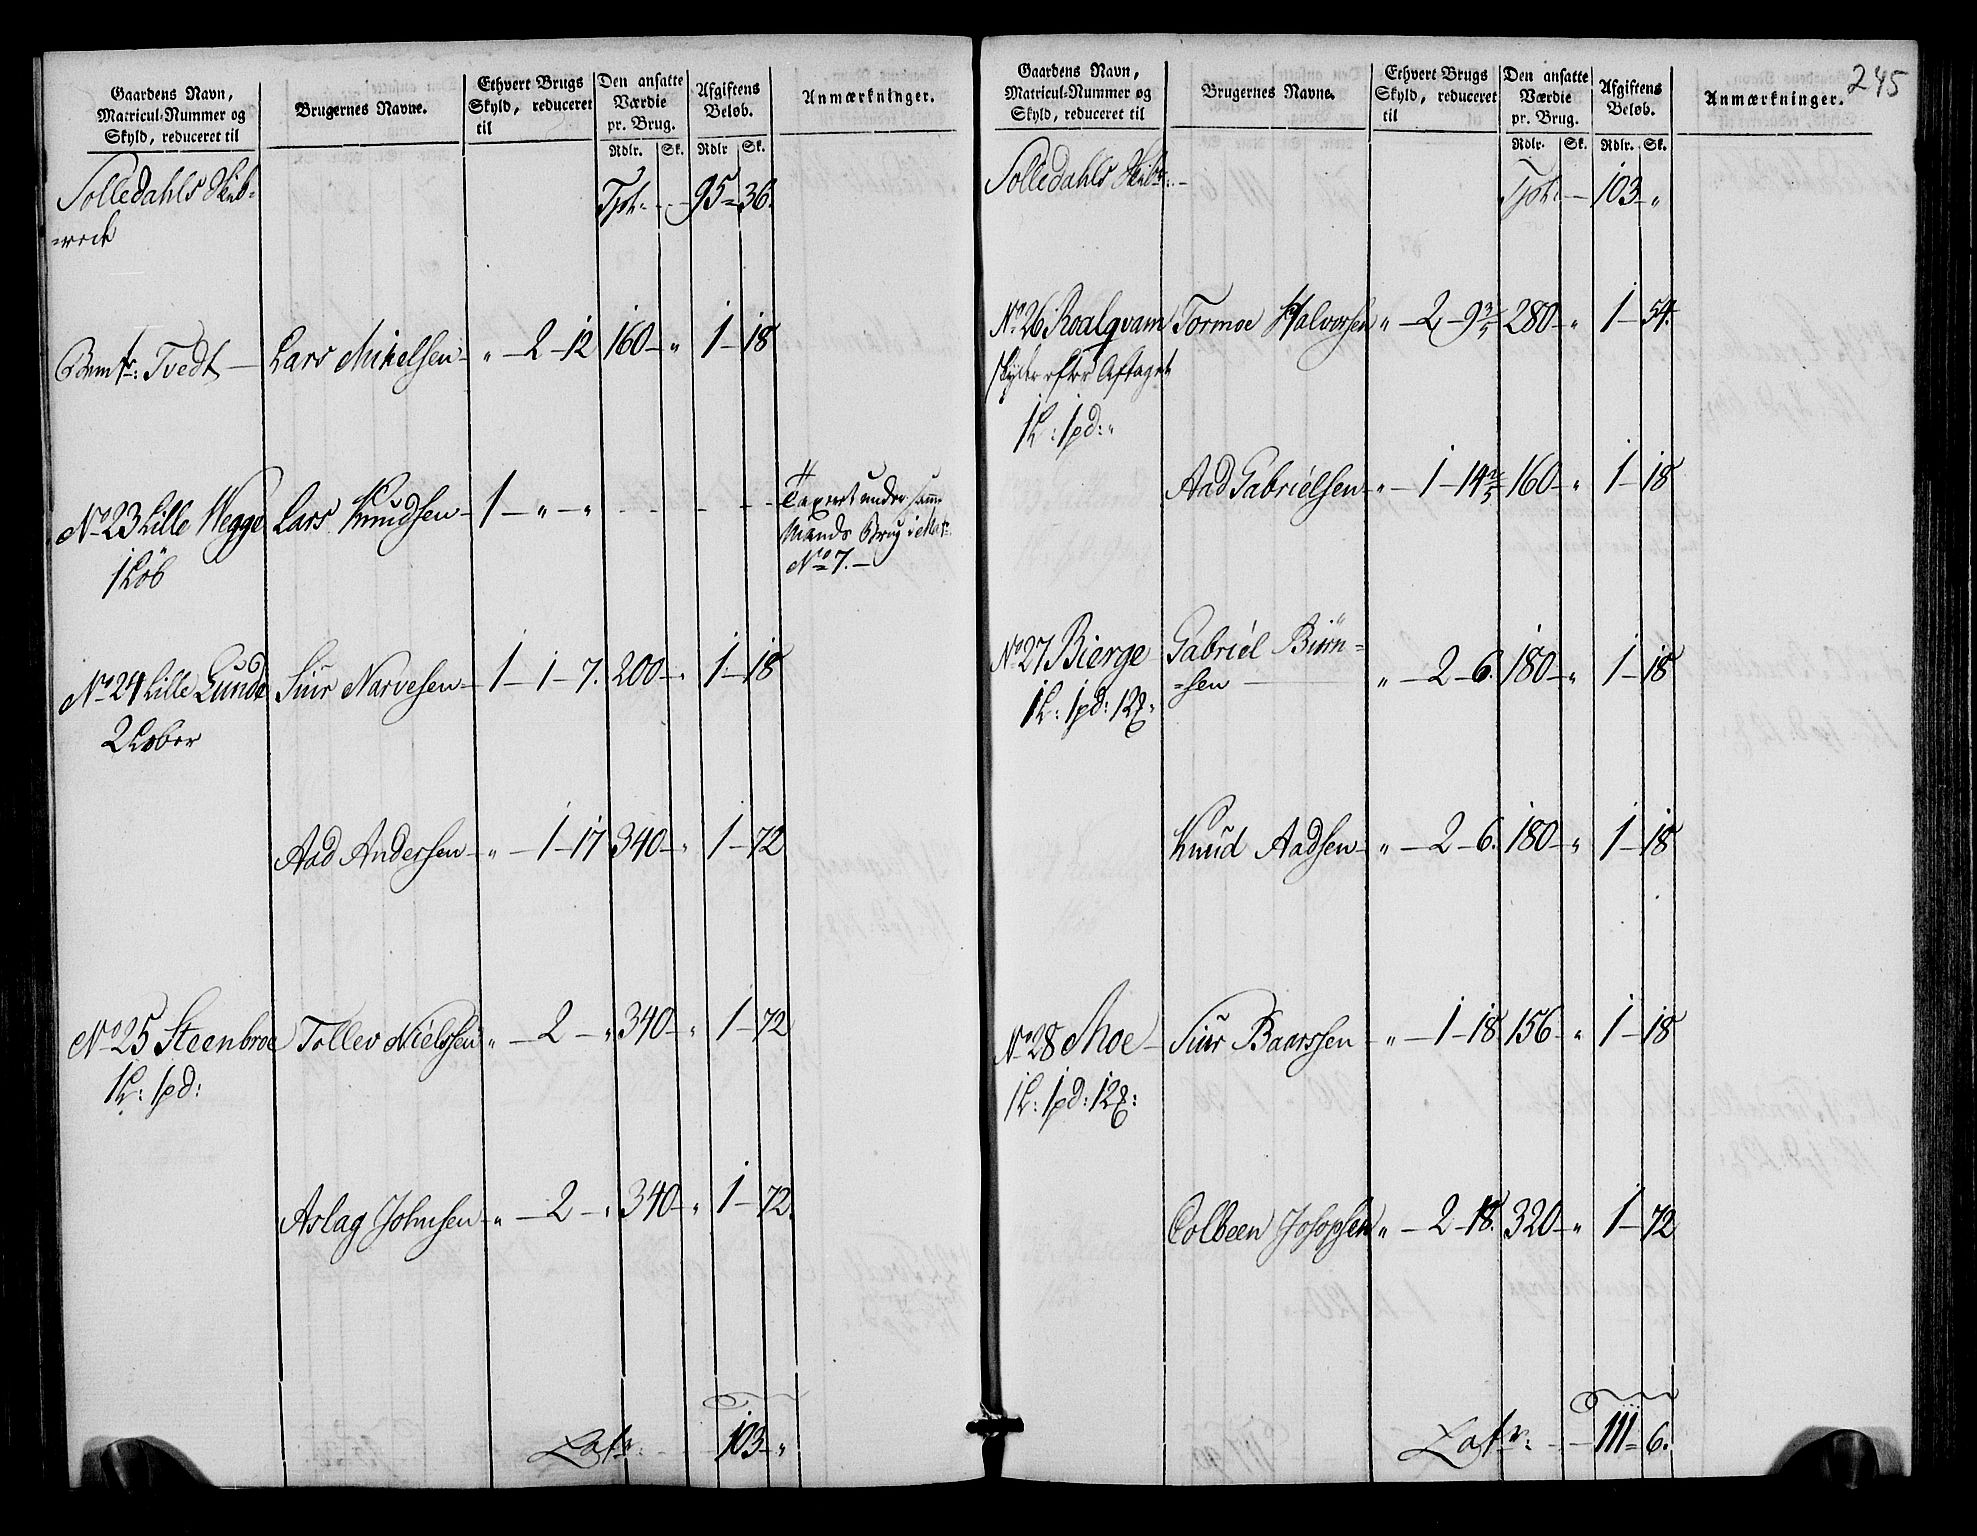 Gaardens Navn, Matricul-Nummer og Skyld, reduceret til | Brugernes Navne. | Ethvert Brugs Skyld, reduceret til | Den ansatte Værdie pr. Brug. Rdlr. Sk. | Afgiftens Beløb. Rdlr Sk. | Anmærkninger.
Solledahls Skib-
=rede
Tpt. – 95 – 36.
Tvedt – Lars Mikelsen – „ – 2 – 12 160 – „ 1 – 18
No 23 Lille Wegge Lars Knudsen – 1 – „ – „ – – – –
1 Løb
Taxeret under samme
Mands Brug i Matr:
No 7. –
No 24 Lille Gunde Siur Narvesen – 1 – 1 – 7. 200 – „ 1 – 18
2 Løber
Aad Andersen – „ – 1 – 17 340 – „ 1 – 72
No 25 Steenbroe Tollev Nielssen „ – 2 – „ 340 – „ 1 – 72
1 L: 1 pd:
Aslag Johnsen – „ – 2 – „ 340 – „ 1 – 72.
Latr: – 103 – „
245
Gaardens Navn, Matricul-Nummer og Skyld, reduceret til | Brugernes Navne. | Ethvert Brugs Skyld, reduceret til | Den ansatte Værdie pr. Brug. Rdlr. Sk. | Afgiftens Beløb. Rdlr. Sk. | Anmærkninger.
Solledahls Skibr: –
Tpt. – 103 – „
No 26 Roalqvam Tormoe Halvorsen „ – 2 – 9 3/5 280 – „ 1 – 54.
skylder efter Aftaget
1 L: 1 pd: „
Aad Gabrielsen – „ – 1 – 14 2/5 160 – „ 1 – 18
No 27 Bierge Gabriel Biørn=
=sen – „ – 2 – 6. 180 – „ 1 – 18
1 L: 1 pd: 12 ℔:
Knud Aadsen – „ – 2 – 6. 180 – „ 1 – 18
No 28 Moe – Siur Baarssen – „ – 1 – 18 156 – „ 1 – 18
1 L: 1 pd: 12 ℔:
Colbeen Josepsen „ – 2 – 18. 320 – „ 1 – 72
Latr: – 111 – 6.